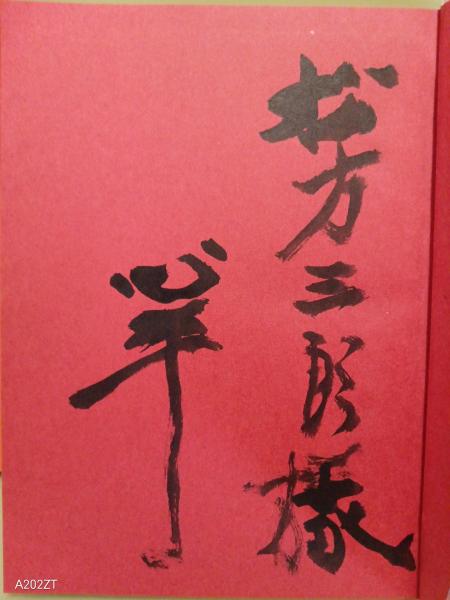 松方三郎様
心平
A202ZT